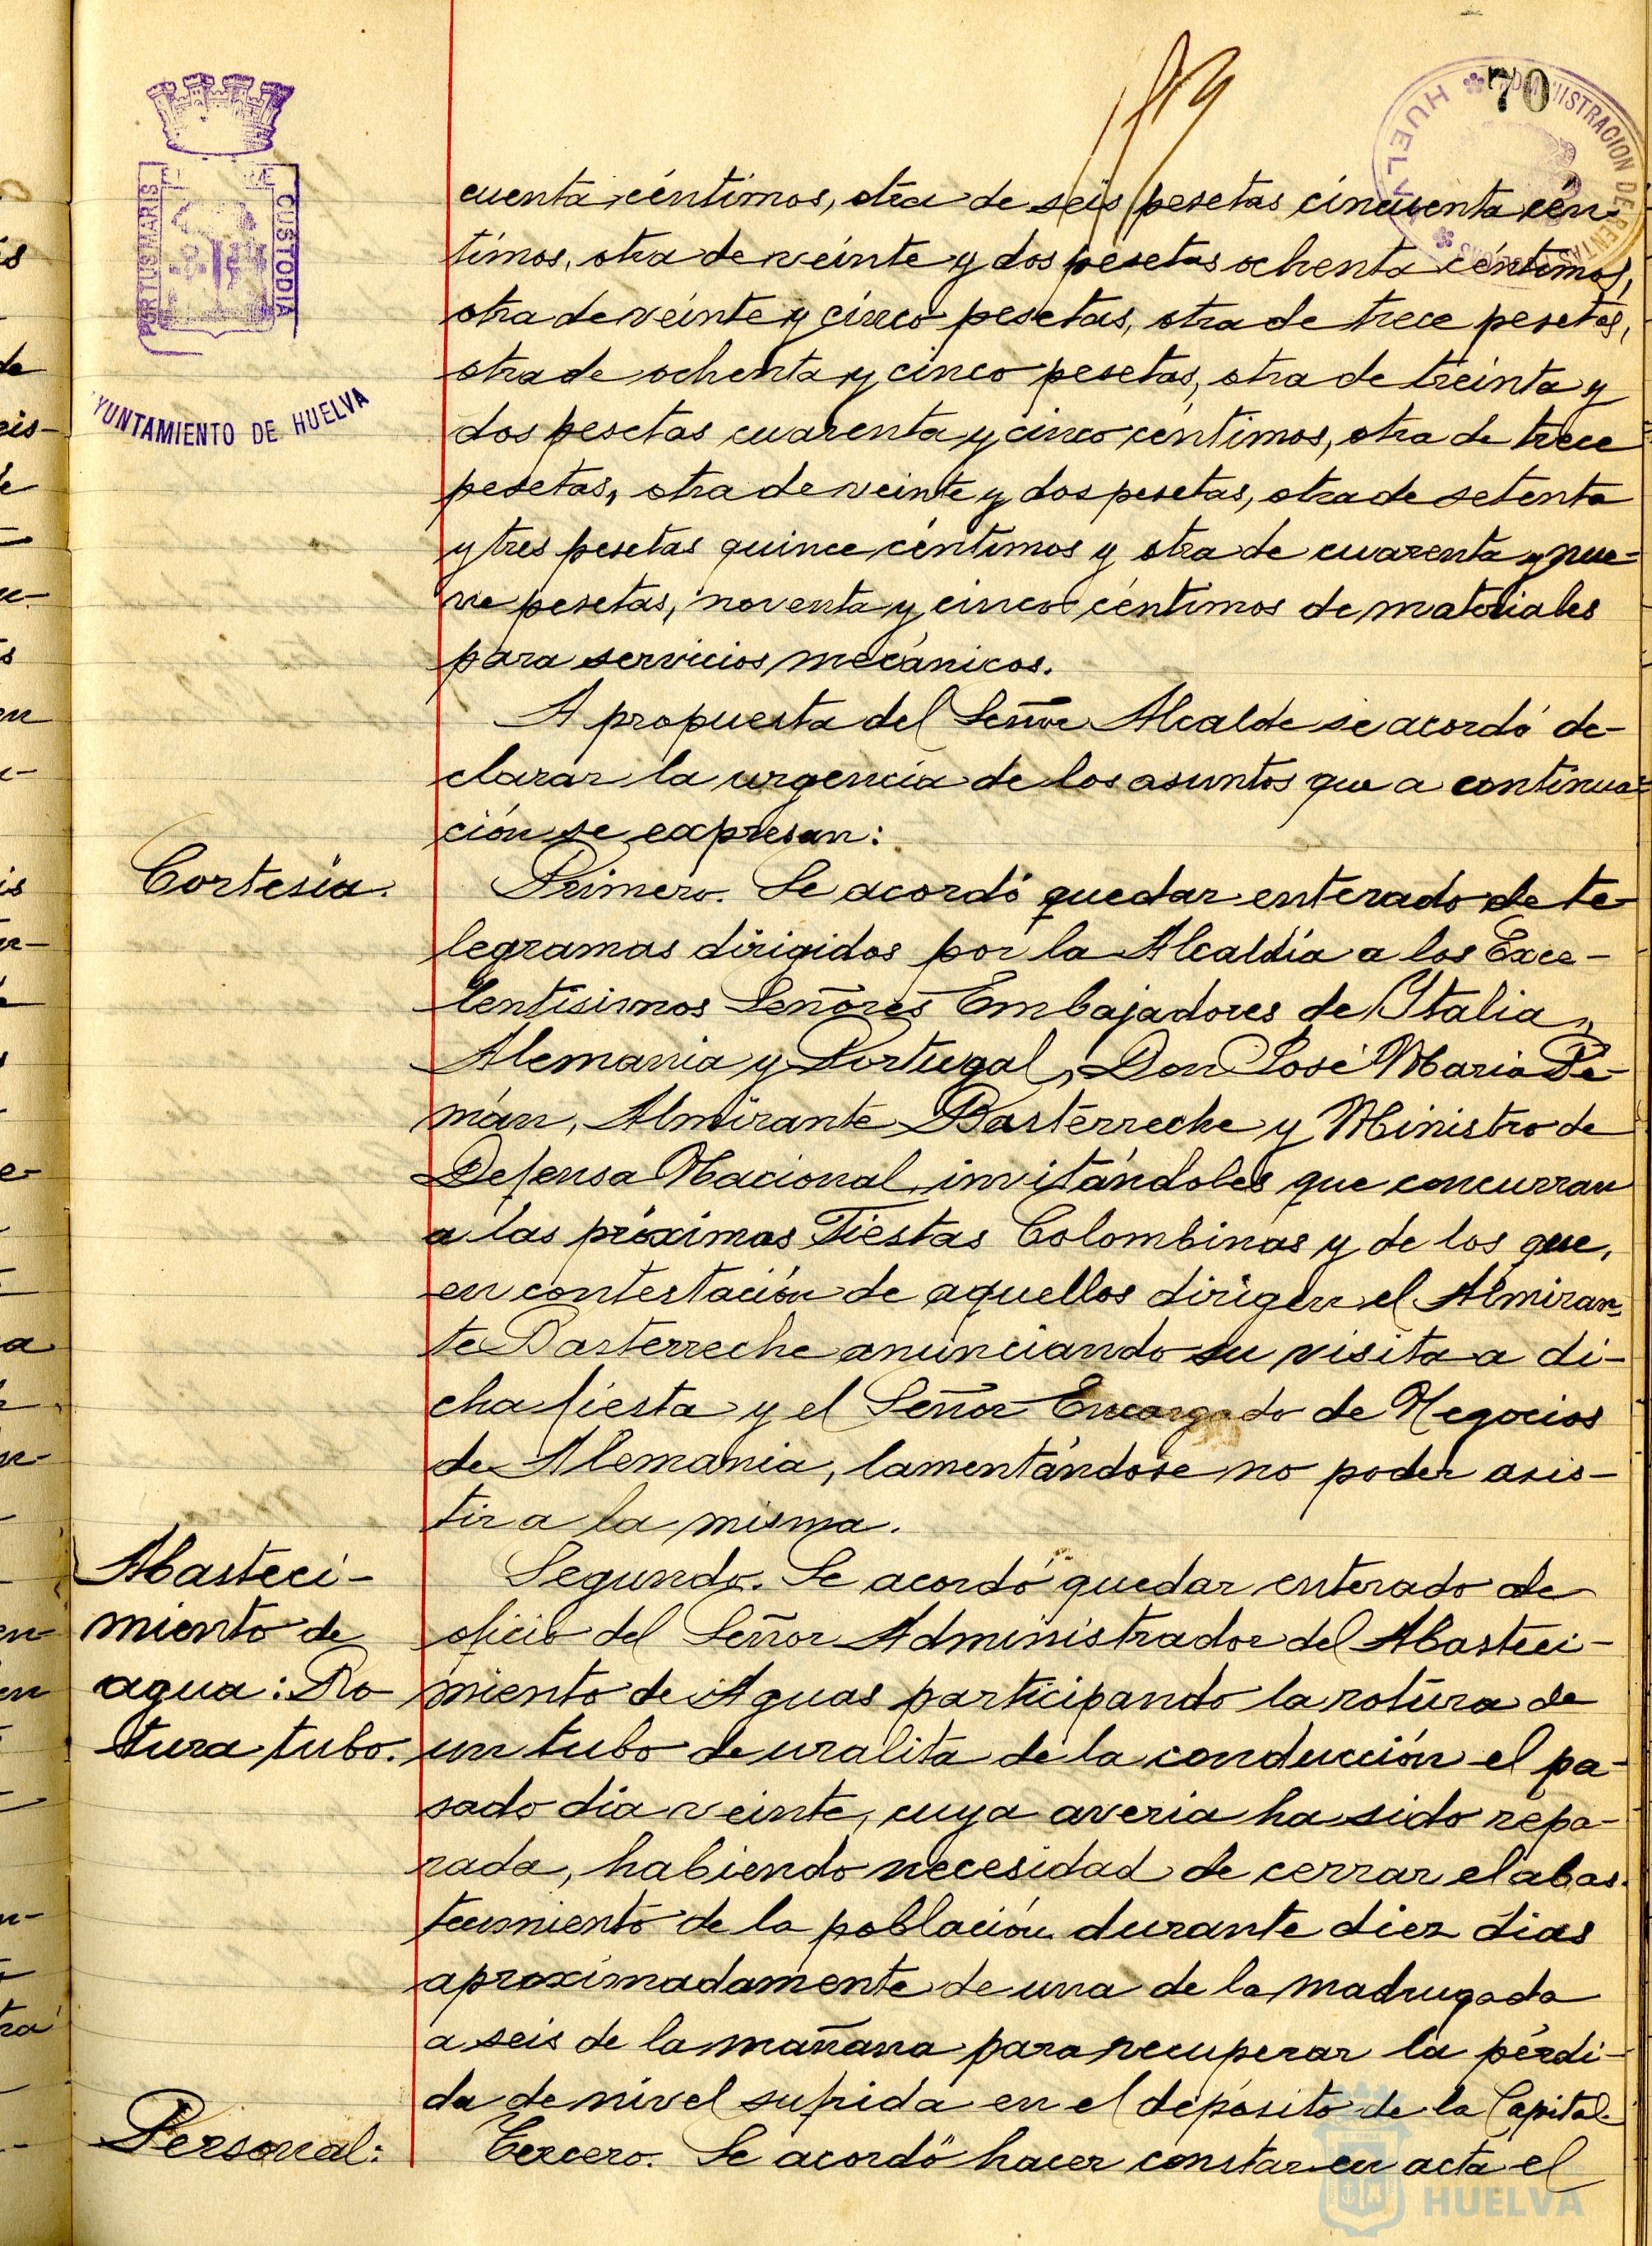 70
ADMINISTRACION DE RENTAS
HUELVA
PORTUS MARIS
CUSTODIA
AYUNTAMIENTO DE HUELVA
cuenta céntimos, otra de seis pesetas cincuenta cén-
timos, otra de veinte y dos pesetas ochenta céntimos,
otra de veinte y cinco pesetas, otra de trece pesetas,
otra de ochenta y cinco pesetas, otra de treinta y
dos pesetas cuarenta y cinco céntimos, otra de trece
pesetas, otra de veinte y dos pesetas, otra de setenta
y tres pesetas quince céntimos y otra de cuarenta y nue-
ve pesetas, noventa y cinco céntimos de materiales
para servicios mecánicos.
A propuesta del Señor Alcalde se acordó de-
clarar la urgencia de los asuntos que a continua-
ción se expresan:
Cortesía.
Primero. Se acordó quedar enterado de te-
legramas dirigidos por la Alcaldía a los Exce-
lentísimos Señores Embajadores de Italia,
Alemania y Portugal, Don José Maria Pe-
mán, Almirante Basterreche y Ministro de
Defensa Nacional, invitándoles que concurran
a las próximas Fiestas Colombinas y de los que,
en contestación de aquellos dirigen el Almiran-
te Basterreche anunciando su visita a di-
cha fiesta y el Señor Encargado de Negocios
de Alemania, lamentándose no poder asis-
tir a la misma.
Abasteci-
miento de
agua: Ro
tura tubo.
Segundo. Se acordó quedar enterado de
oficio del Señor Administrador del Abasteci-
miento de Aguas participando la rotura de
un tubo de uralita de la conducción el pa-
sado día veinte, cuya averia ha sido repa-
rada, habiendo necesidad de cerrar el abas-
tecimiento de la población durante diez dias
aproximadamente de una de la madrugada
a seis de la mañana para recuperar la pérdi-
da de nivel sufrida en el depósito de la Capital.
Personal:
Tercero. Se acordó hacer constar en acta el
HUELVA